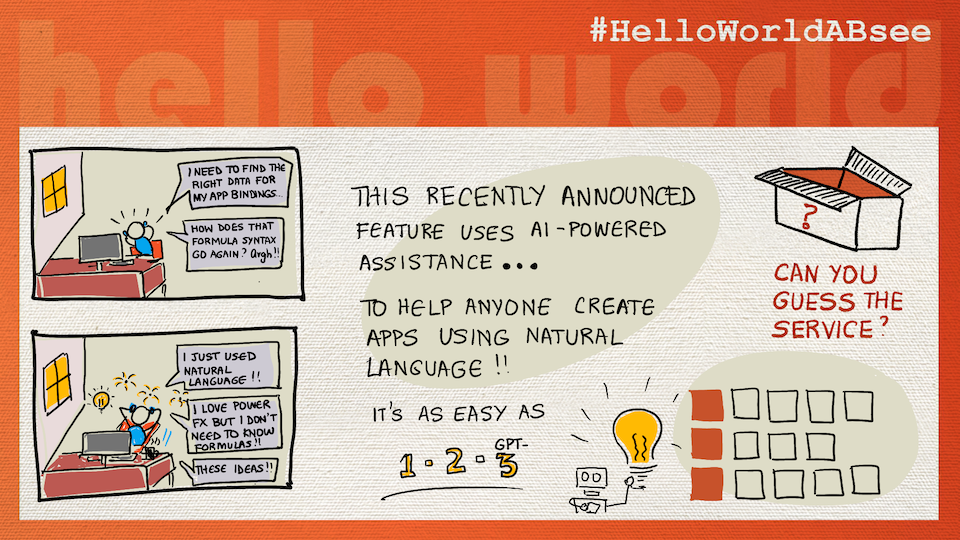 hello world
#HelloWorldABsee
I NEED TO FIND THE
RIGHT DATA FOR
MY APP BINDINGS..
HOW DOES THAT
FORMULA SYNTAX
GO AGAIN? Argh!!
I JUST USED
NATURAL
LANGUAGE !!
I LOVE POWER
FX BUT I DON'T
NEED TO KNOW
FORMULAS!!
THESE IDEAS!!
THIS RECENTLY ANNOUNCED
FEATURE USES AI-POWERED
ASSISTANCE...
TO HELP ANYONE CREATE
APPS USING NATURAL
LANGUAGE !!
IT'S AS EASY AS
GPT-
1 · 2 · 3
?
CAN YOU
GUESS THE
SERVICE?